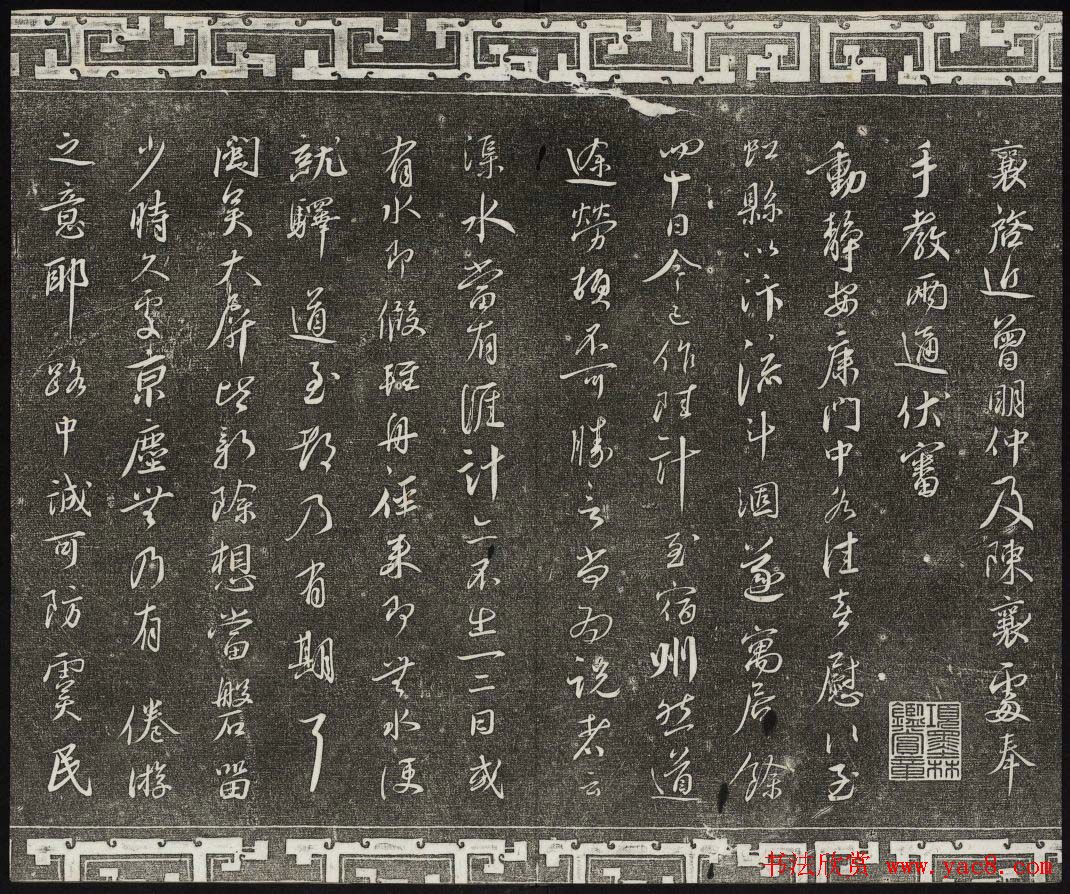 襄啓近曾明仲及陳襄處奉
手教兩通伏審
動靜安康門中各佳喜慰〻至
虹縣以汴流斗涸遂寓居餘
四十日今已作陸計至宿州然道
途勞頓不可勝言尚為說者云
渠水當有涯計亦不出一二日或
有水即假輕舟徑來即無水便
就驛道至都乃有期耳
閩吳大屏皆新除想當磐留
少時久處京塵無乃有倦游
之意耶路中誠可防虞民
項墨林
鑑賞章
书法欣赏 www.yac8.com